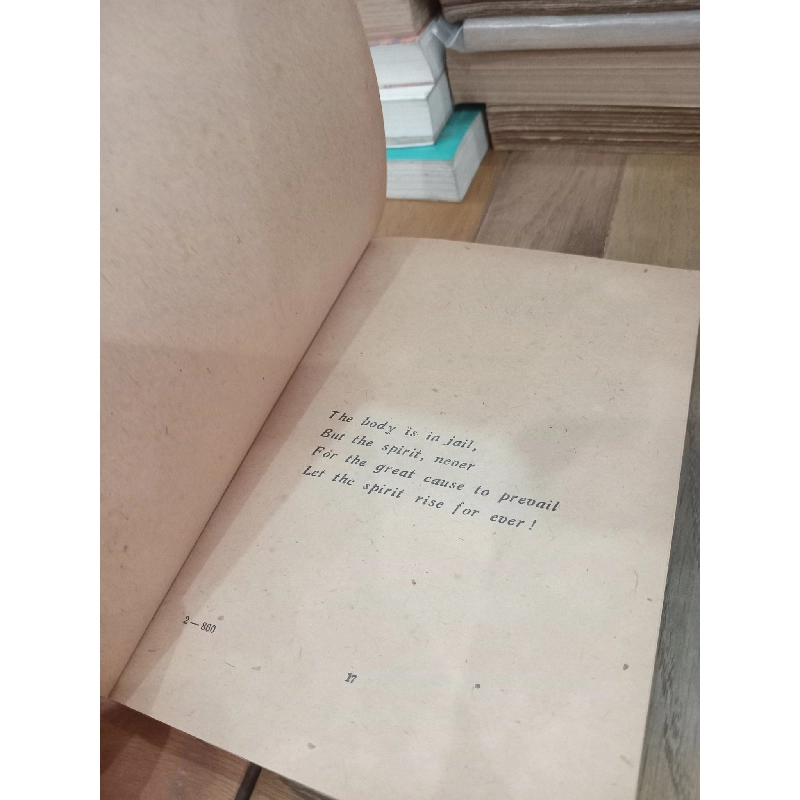 The body is in jail,
But the spirit, never
For the great cause to prevail
Let the spirit rise for ever !
2 — 860
17